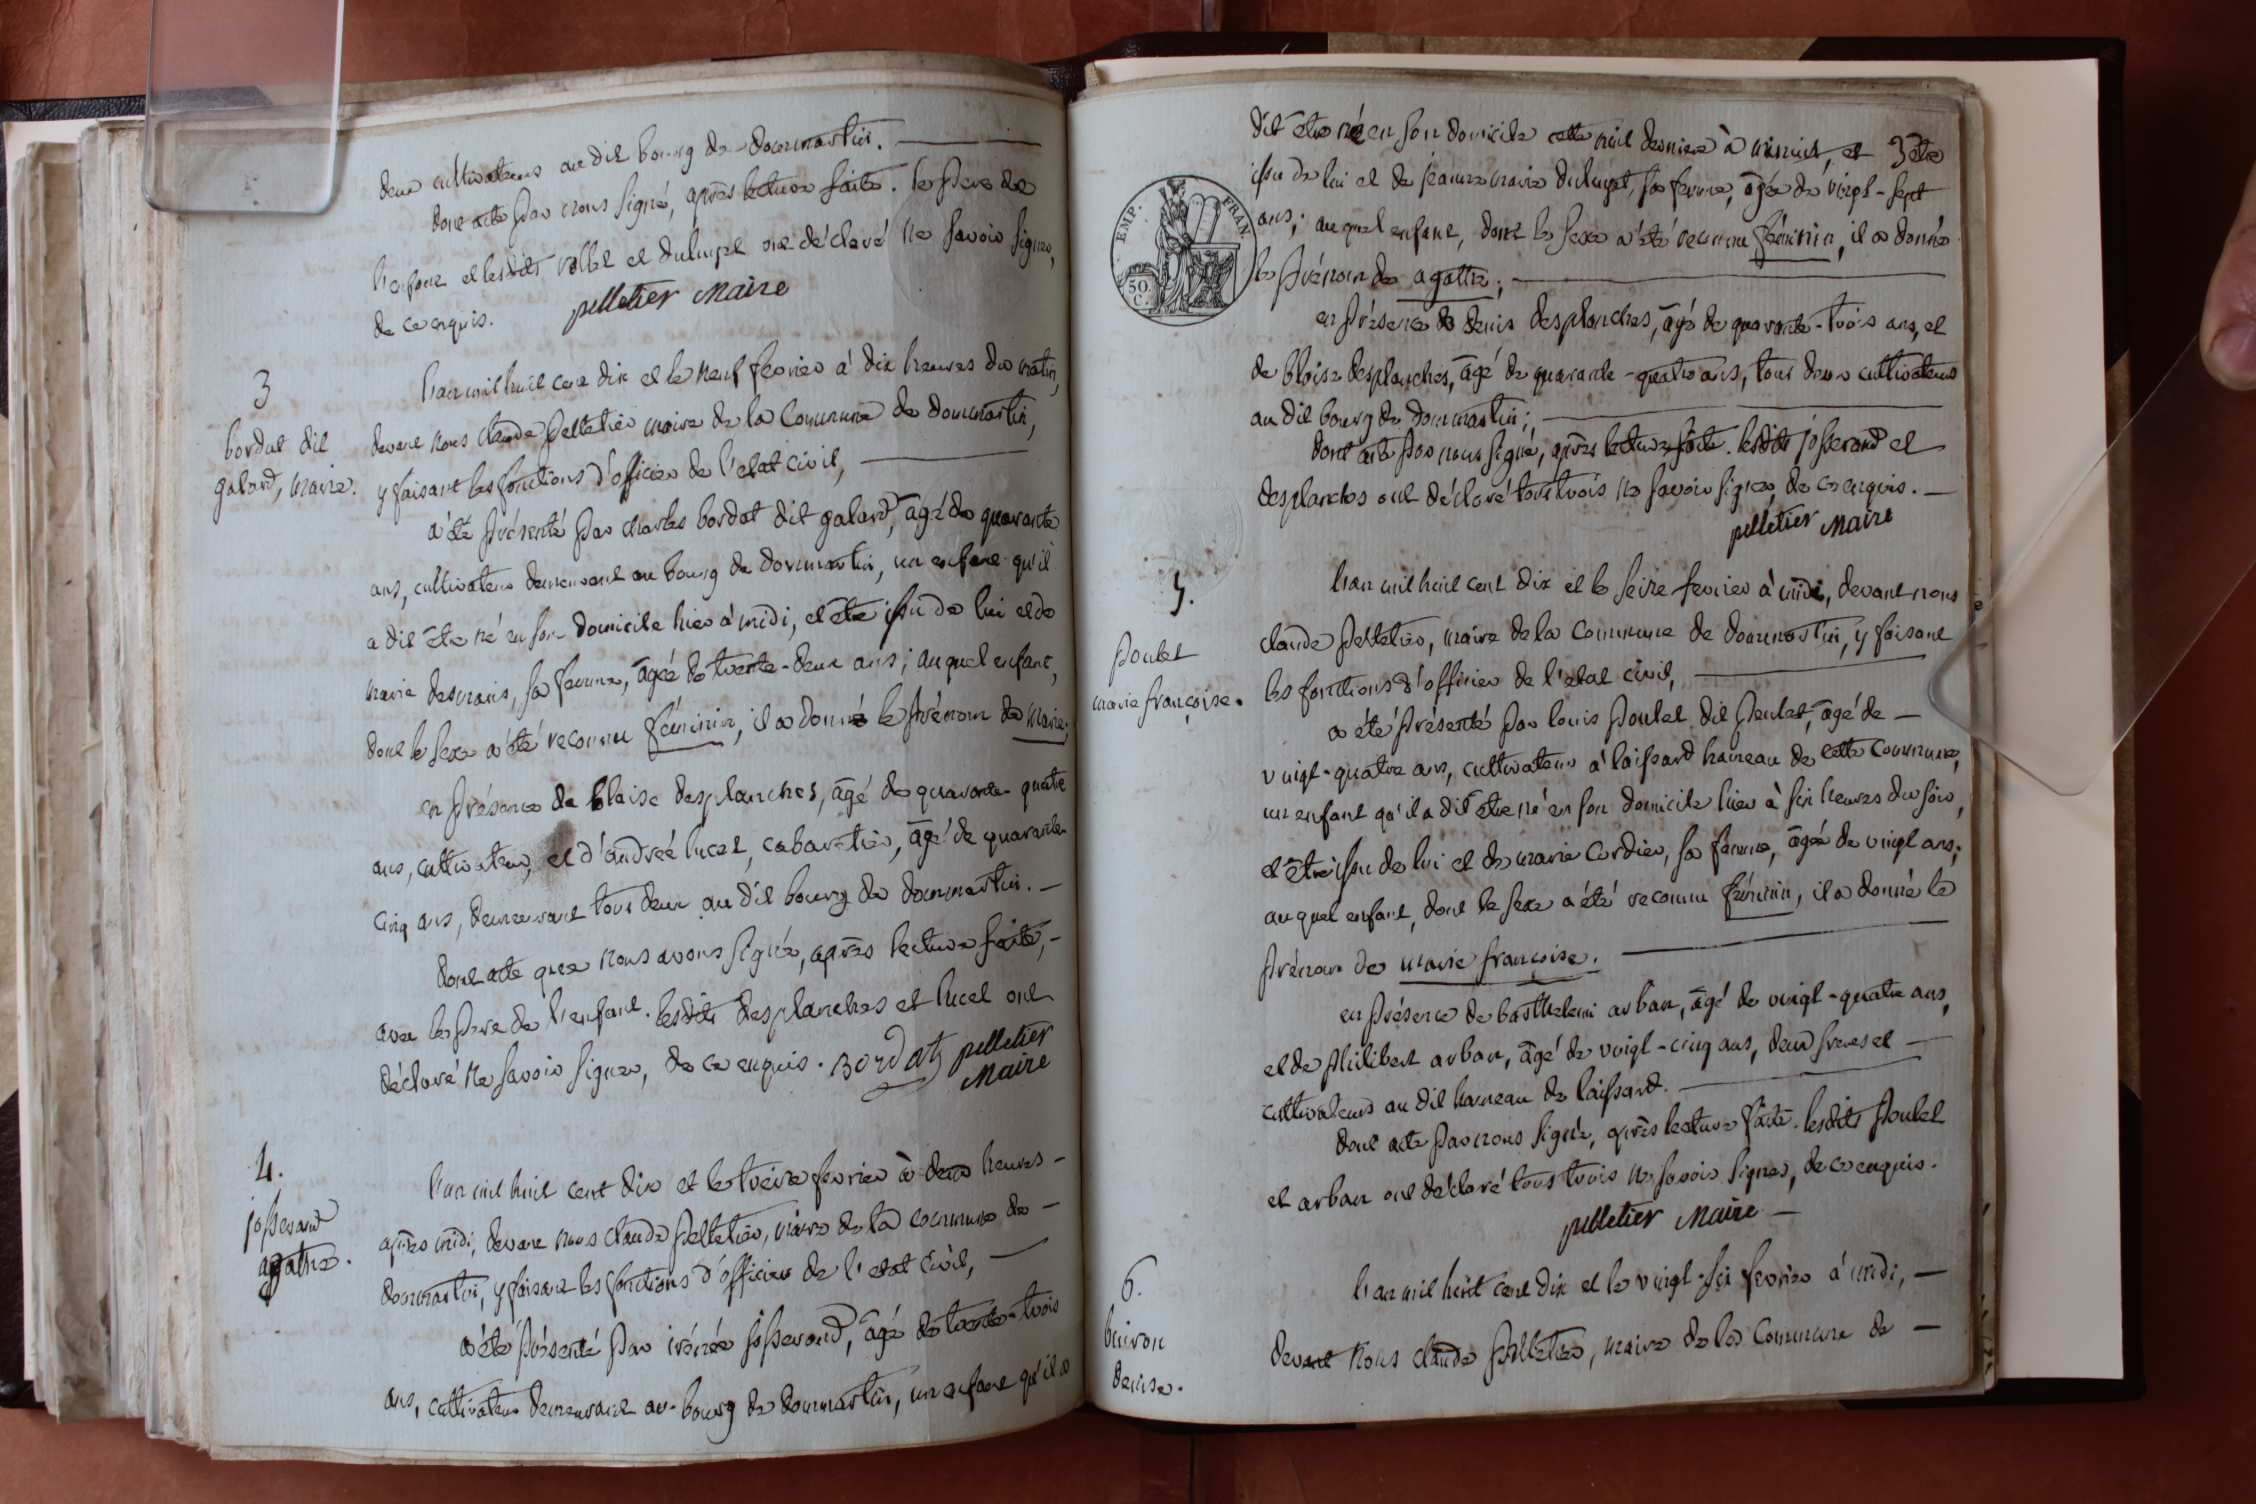 deux cultivateurs au dit bourg de dommartin.
dont acte par nous signé, après lecture faite. le pere de
l'enfant et lesdits vollet et dulmpt ont déclaré ne savoir signer,
de ce enquis. pelletier Maire
3
bordat dit
galard, marie.
l'an mil huit cent dix et le neuf fevrier à dix heures du matin,
devant nous claude pelletier maire de la commune de dommartin,
y faisant les fonctions d'officier de l'etat civil,
a été présenté par charles bordat dit galard, âgé de quarante
ans, cultivateur demeurant au bourg de dommartin, un enfant qu'il
a dit être né en son domicile hier à midi, et être issu de lui et de
marie desmaris, sa femme, âgée de trente-deux ans; auquel enfant,
dont le sexe a été reconnu féminin, il a donné le prénom de marie;
en présence de blaise desplanches, âgé de quarante-quatre
ans, cultivateur, et d'andreé lucet, cabaretier, âgé de quarante
cinq ans, demeurant tous deux au dit bourg de dommartin.
dont acte que nous avons signé, après lecture faite,
avec le pere de l'enfant. lesdits desplanches et lucet ont
déclaré ne savoir signer, de ce enquis. Bordat pelletier
Maire
4.
josserand
agathe.
l'an mil huit cent dix et le treize fevrier à deux heures
après midi, devant nous claude pelletier, maire de la commune de
dommartin, y faisant les fonctions d'officier de l'etat civil,
a été présenté par irénée josserand, âgé de trente-trois
ans, cultivateur demeurant au bourg de dommartin, un enfant qu'il a
dit etre né en son domicile cette nuit derniere à minuit, et être
issu de lui et de jeanne marie dulmpt, sa femme, âgée de vingt-sept
EMP. FRAN.
50.
C.
ans; auquel enfant, dont le sexe a été reconnu féminin, il a donné
le prénom de agathe;
en présence de denis desplanches, âgé de quarante-trois ans, et
de blaise desplanches, âgé de quarante-quatre ans, tous deux cultivateurs
au dit bourg de dommartin;
dont acte par nous signé, après lecture faite. lesdits josserand et
desplanches ont déclaré tous trois ne savoir signer, de ce enquis.
pelletier Maire
5.
poulet
marie françoise.
l'an mil huit cent dix et le seize fevrier à midi, devant nous
claude pelletier, maire de la commune de dommartin, y faisant
les fonctions d'officier de l'etat civil,
a été présenté par louis poulet dit peulet, âgé de
vingt-quatre ans, cultivateur à laissard hameau de cette commune,
un enfant qu'il a dit être né en son domicile hier à six heures du soir,
et être issu de lui et de marie Cordier, sa femme, âgée de vingt ans;
auquel enfant, dont le sexe a été reconnu féminin, il a donné le
prénom de marie françoise.
en présence de barthelemi arban, âgé de vingt-quatre ans,
et de philibert arban, âgé de vingt-cinq ans, deux freres et
cultivateurs au dit hameau de laissard.
dont acte par nous signé, après lecture faite. lesdits poulet
et arban ont déclaré tous trois ne savoir signer, de ce enquis.
pelletier Maire
6.
buiron
denise.
l'an mil huit cent dix et le vingt-six fevrier à midi,
devant nous claude pelletier, maire de la commune de